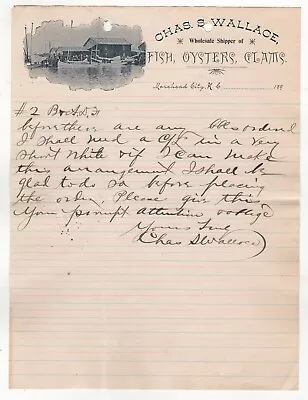 CHAS. S. WALLACE,
Wholesale Shipper of
FISH, OYSTERS, CLAMS.
Morehead City, N. C. 189
#2
before there are any ordered
I shall need a C/L in a very
short while if I can make
this arrangement I shall be
glad to do so before placing
the order. Please give this
Your prompt attention &
Yours Truly
Chas S Wallace